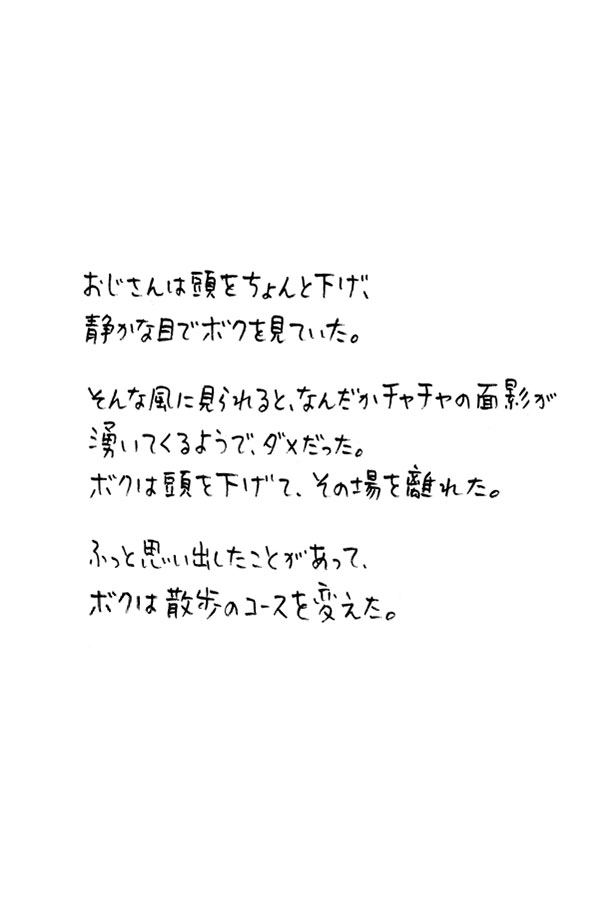 おじさんは頭をちょんと下げ、
静かな目でボクを見ていた。
そんな風に見られると、なんだかチャチャの面影が
湧いてくるようで、ダメだった。
ボクは頭を下げて、その場を離れた。
ふっと思い出したことがあって、
ボクは散歩のコースを変えた。